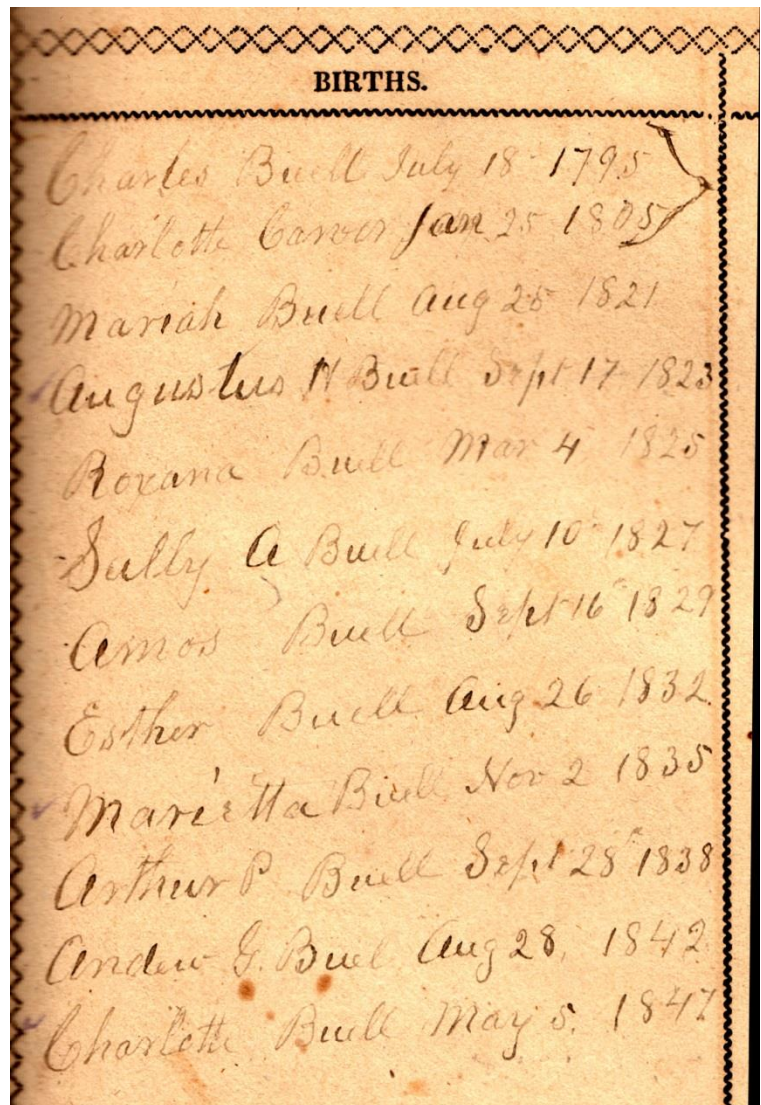 BIRTHS.
Charles Buell July 18 1795
Charlotte Carver Jan 25 1805
Mariah Buell Aug 25 1821
Augustus N Buell Sept 17 1823
Roxana Buell Mar 4 1825
Sally A Buell July 10 1827
Amos Buell Sept 16 1829
Esther Buell Aug 26 1832
Marietta Buell Nov 2 1835
Arthur P Buell Sept 28 1838
Andew G. Buel Aug 28, 1842
Charlotte Buell May 5. 1847